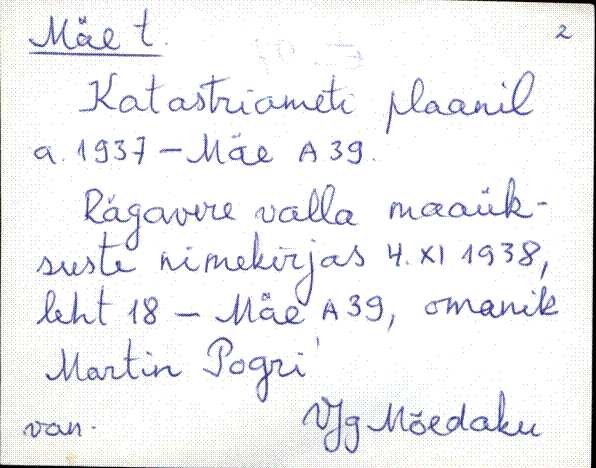 Mäe t. 2
Katastriameti plaanil
a. 1937 – Mäe A 39.
Rägavere valla maaük-
suste nimekirjas 4. XI 1938,
leht 18 – Mäe A 39, omanik
Martin Pogri
van. VJg Mõedaku